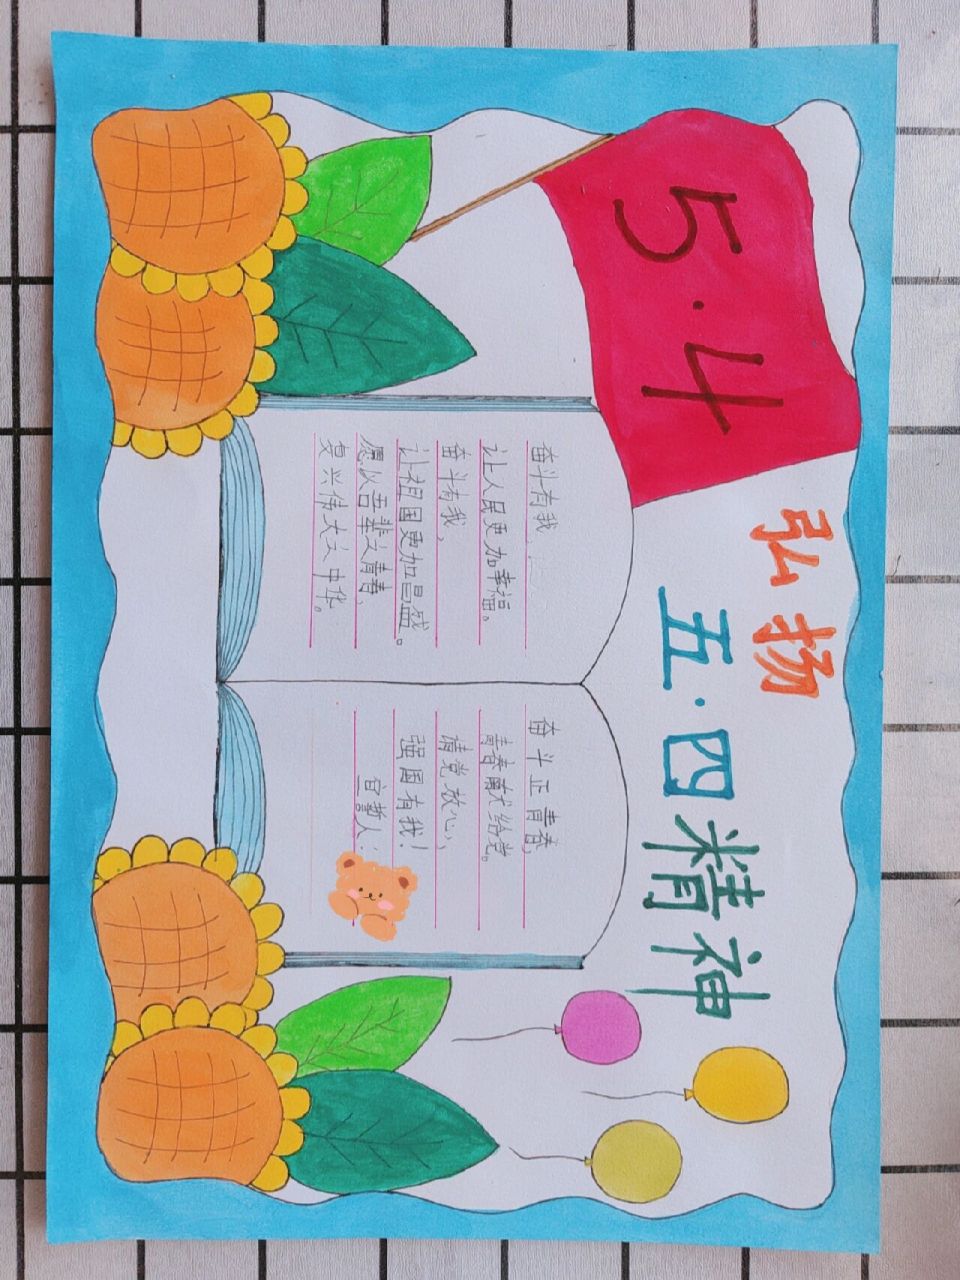 5·4
弘扬
五·四精神
奋斗有我,
让人民更加幸福。
奋斗有我,
让祖国更加昌盛。
愿以吾辈之青春,
复兴伟大之中华。
奋斗正青春,
青春献给党。
请党放心,
强国有我!
宣誓人: